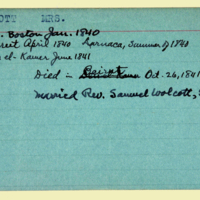 OTT MRS.
. Boston Jan. 1840
rut April 1840 Larnaca, Summer of 1840
el-Kamer June 1841
Died in Beirut Oct. 26, 1841
Married Rev. Samuel Wolcott,